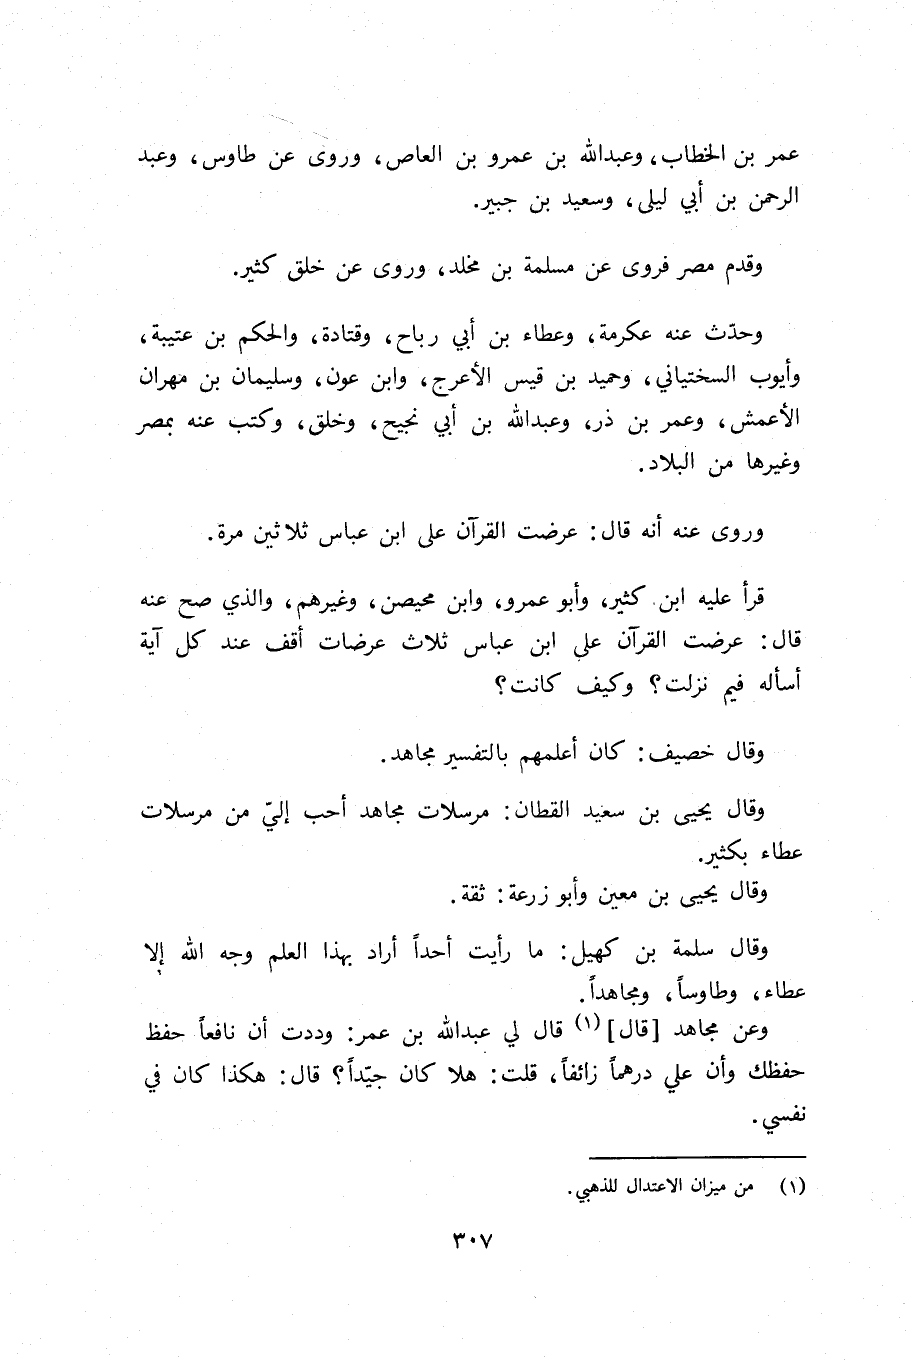 عمر بن الخطاب، وعبدالله بن عمرو بن العاص، وروى عن طاوس، وعبد
الرحمن بن أبي ليلى، وسعيد بن جبير.
وقدم مصر فروى عن مسلمة بن مخلد، وروى عن خلق كثير.
وحدّث عنه عكرمة، وعطاء بن أبي رباح، وقتادة، والحكم بن عتيبة،
وأيوب السختياني، وحميد بن قيس الأعرج، وابن عون، وسليمان بن مهران
الأعمش، وعمر بن ذر، وعبدالله بن أبي نجيح، وخلق، وكتب عنه بمصر
وغيرها من البلاد.
وروى عنه أنه قال: عرضت القرآن على ابن عباس ثلاثين مرة.
قرأ عليه ابن كثير، وأبو عمرو، وابن محيصن، وغيرهم، والذي صح عنه
قال: عرضت القرآن على ابن عباس ثلاث عرضات أقف عند كل آية
أسأله فيم نزلت؟ وكيف كانت؟
وقال خصيف: كان أعلمهم بالتفسير مجاهد.
وقال يحيى بن سعيد القطان: مرسلات مجاهد أحب إليّ من مرسلات
عطاء بكثير.
وقال يحيى بن معين وأبو زرعة: ثقة.
وقال سلمة بن كهيل: ما رأيت أحداً أراد بهذا العلم وجه الله إلا
عطاء، وطاوساً، ومجاهداً.
وعن مجاهد [قال](١) قال لي عبدالله بن عمر: وددت أن نافعاً حفظ
حفظك وأن علي درهماً زائفاً، قلت: هلا كان جيّداً؟ قال: هكذا كان في
نفسي.
(١) من ميزان الاعتدال للذهبي.
٣٠٧